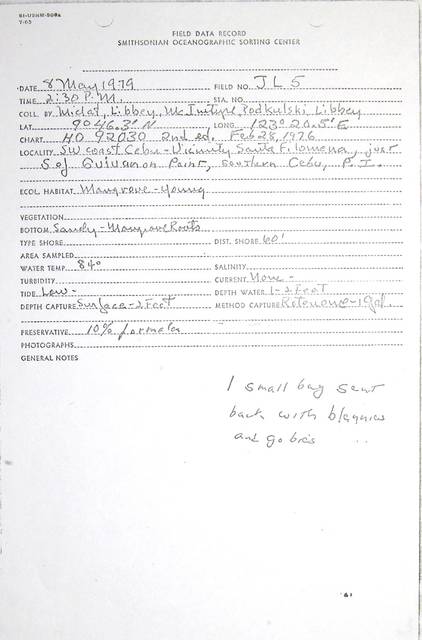 SI-USNM-508a
7-65
FIELD DATA RECORD
SMITHSONIAN OCEANOGRAPHIC SORTING CENTER
DATE 8 May 1979 FIELD NO. JL5
TIME 2:30 P.M. STA. NO.
COLL. BY Miclat, Libbey, McIntyre, Podkulski, Libbey
LAT. 9° 46.3' N LONG. 123° 20.5' E
CHART HO 92030 2nd ed. Feb 28, 1976
LOCALITY SW coast Cebu - Vicinity Santa Filomena, just
S of Guiwanon Point, Southern Cebu, P.I.
ECOL. HABITAT Mangrove - young
VEGETATION
BOTTOM Sandy - Mangrove Roots
TYPE SHORE DIST. SHORE 60'
AREA SAMPLED
WATER TEMP. 84° SALINITY
TURBIDITY CURRENT None -
TIDE Low - DEPTH WATER 1-2 Feet
DEPTH CAPTURE Surface - 2 Feet METHOD CAPTURE Rotenone - 1 gal
PRESERVATIVE 10% formalin
PHOTOGRAPHS
GENERAL NOTES
1 small bag sent
back with blennies
and gobies